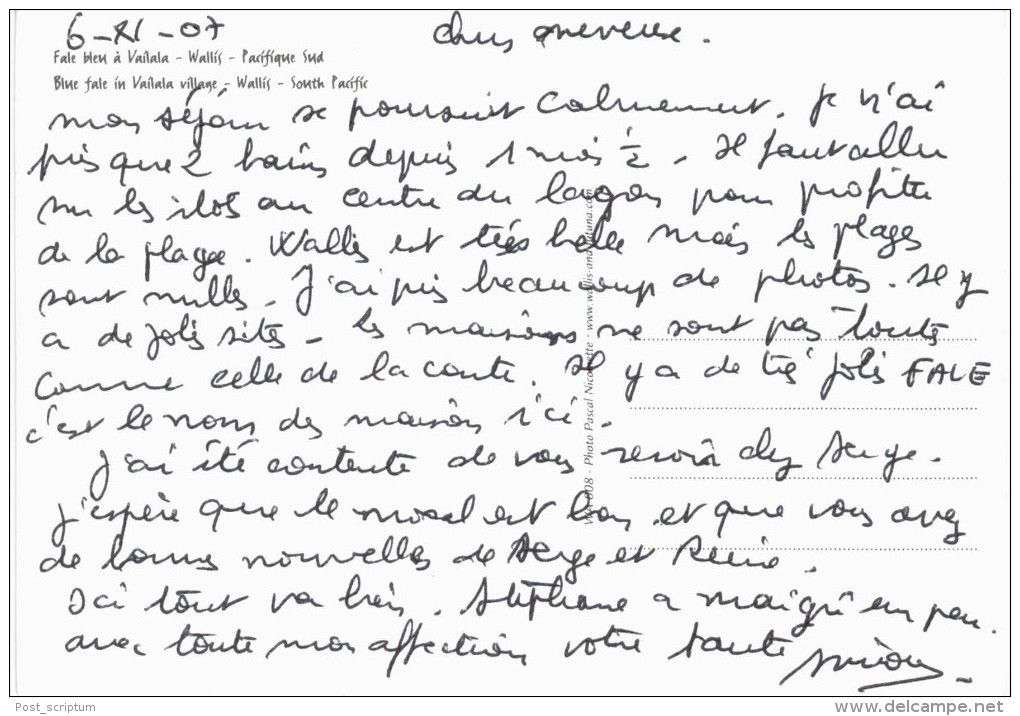 6-XI-07
chers neveux.
Fale bleu à Vailala - Wallis - Pacifique Sud
Blue fale in Vailala village - Wallis - South Pacific
mon séjour se poursuit calmement. Je n'ai
pris que 2 bains depuis 1 mois ½. Il faut aller
sur les ilots au centre du lagon pour profiter
de la plage. Wallis est très belle mais les plages
sont nulles. J'ai pris beaucoup de photos. Il y
a de jolis sites - les maisons ne sont pas toutes
comme celle de la carte. Il y a de très jolis FALE
c'est le nom des maisons ici.
J'ai été contente de vous revoir chez Serge.
J'espère que le moral est bon et que vous avez
de bonnes nouvelles de Serge et
Ici tout va bien. Stéphane a maigri un peu.
avec toute mon affection votre tante
008 - Photo Pascal Nicomette - www.wallis-and-futuna.com
Post_scriptum
www.delcampe.net